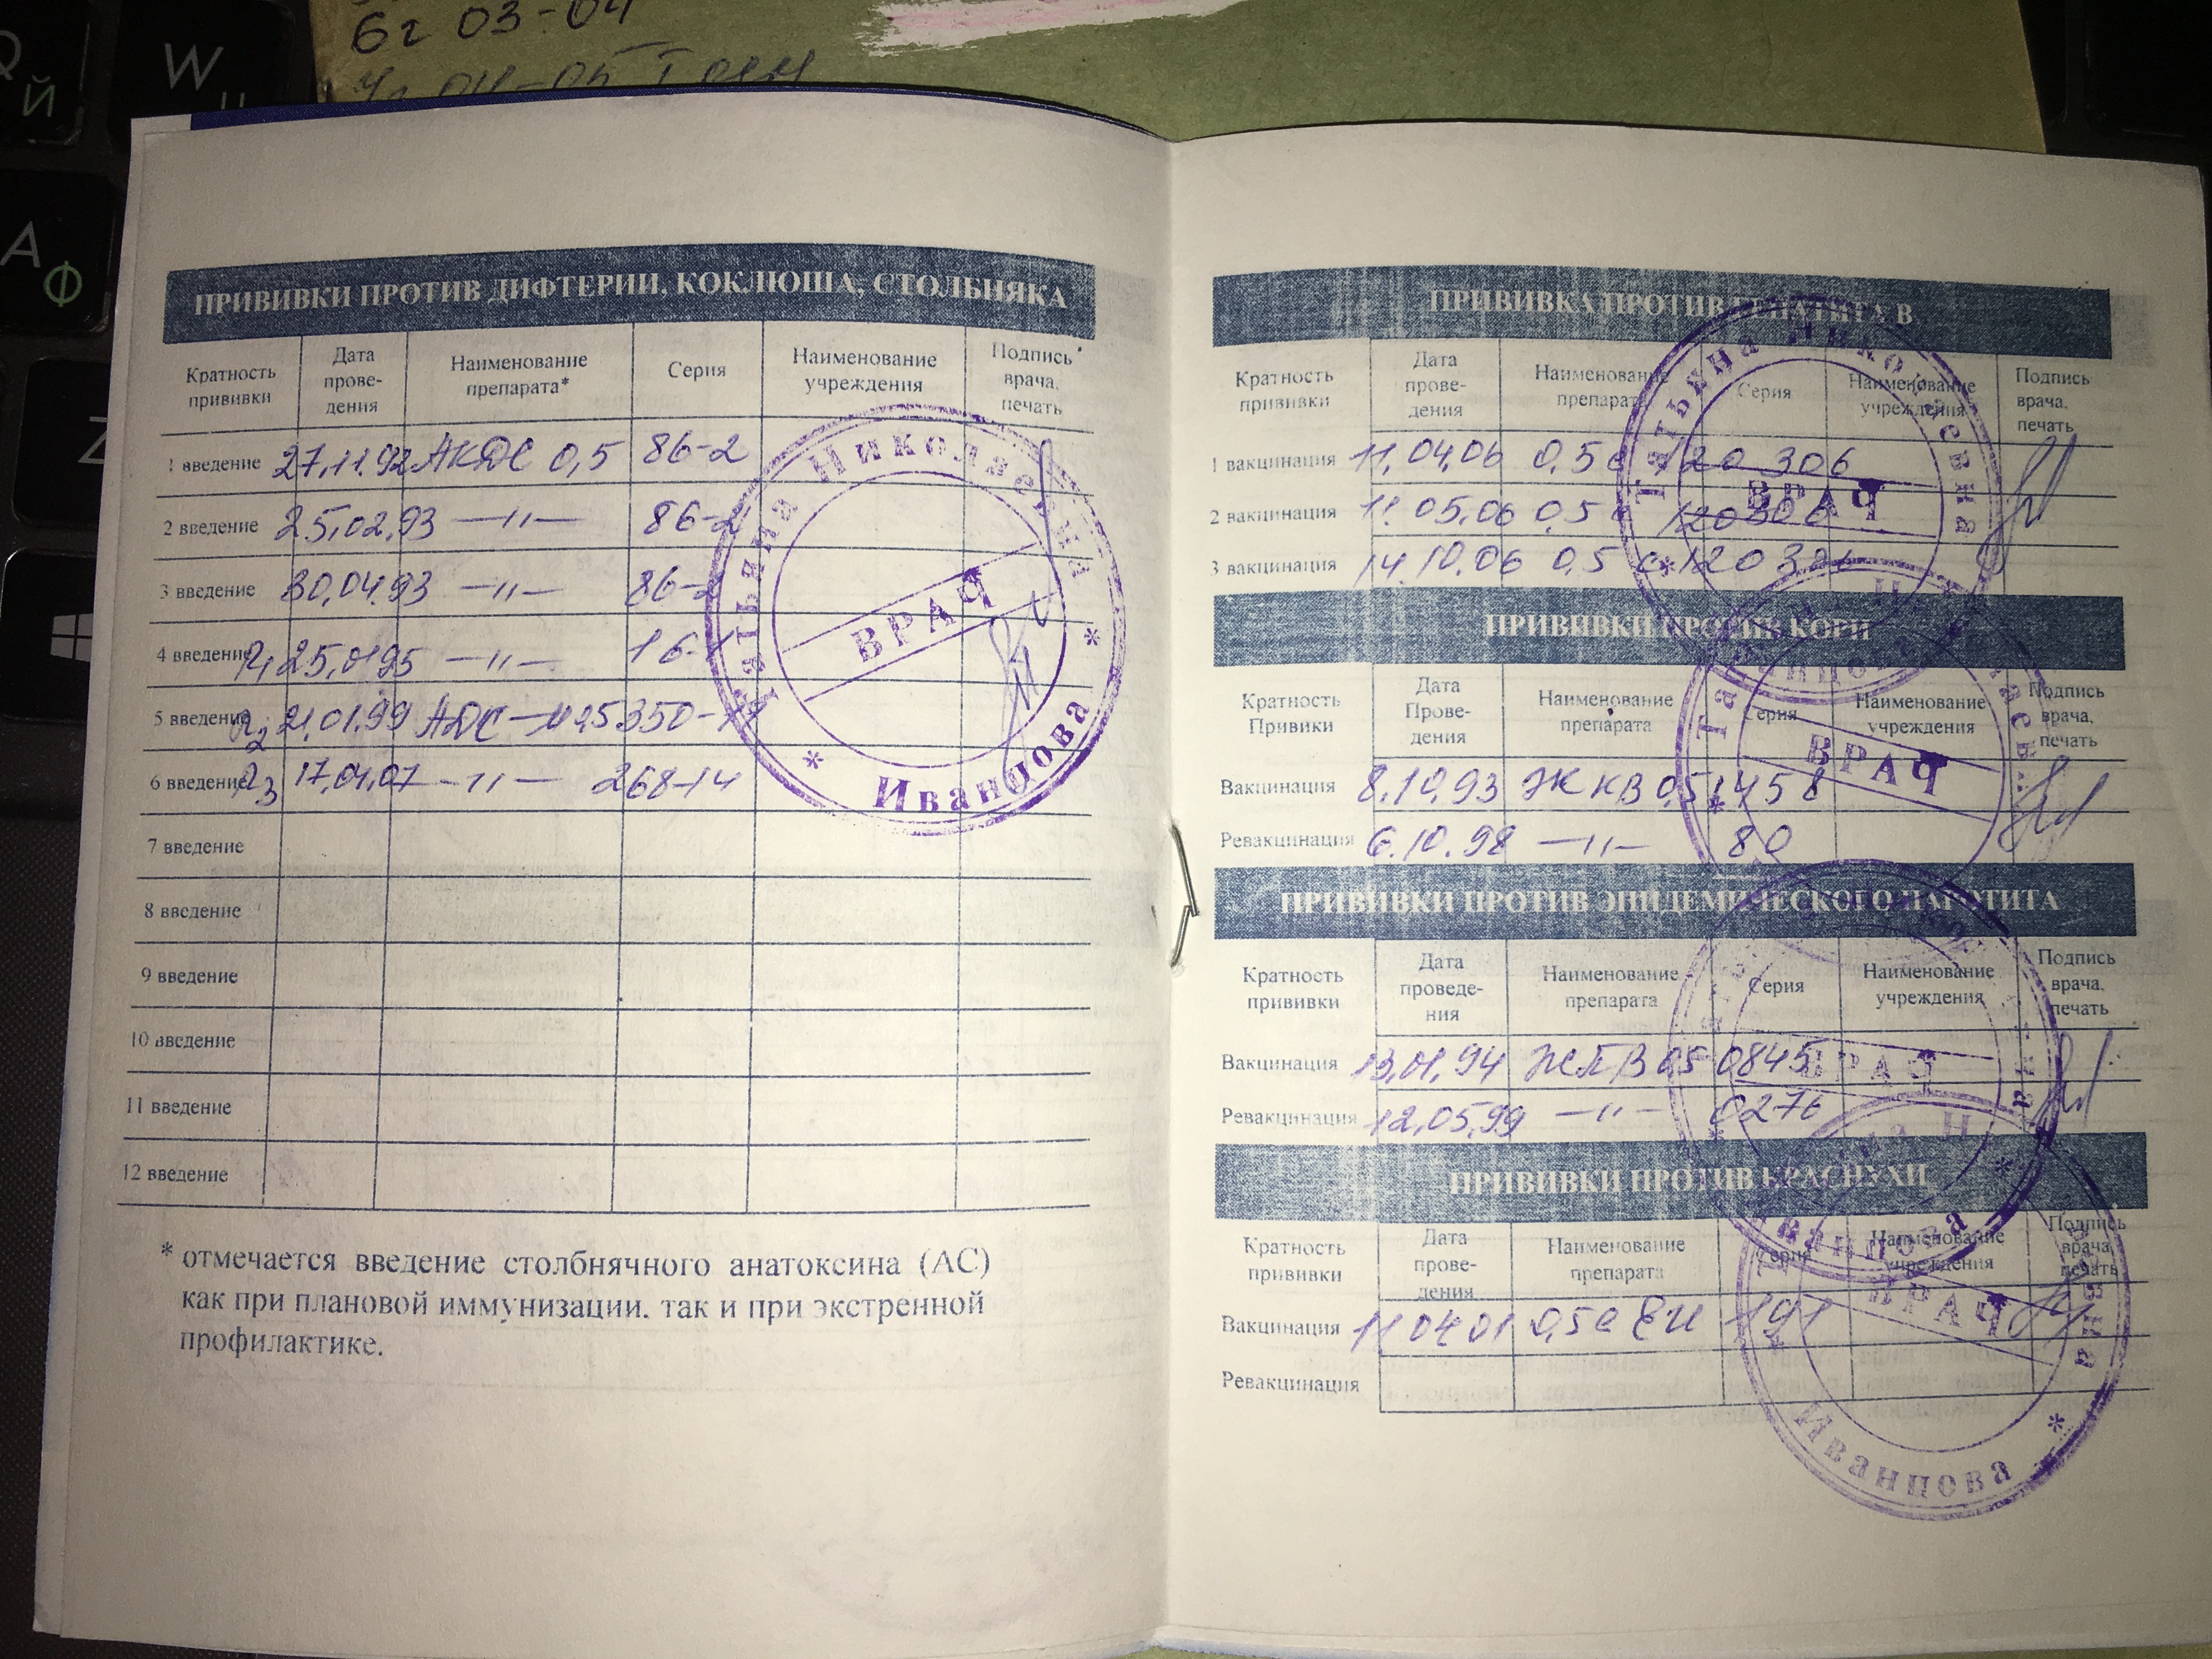 6г 03-04
W
Й
A
Ф
Z
ПРИВИВКИ ПРОТИВ ДИФТЕРИИ, КОКЛЮША, СТОЛБНЯКА
Кратность прививки Дата прове-дения Наименование препарата* Серия Наименование учреждения Подпись врача, печать
1 введение 27.11.92 АКДС 0,5 86-2
2 введение 25.02.93 —〃— 86-2
3 введение 30.04.93 —〃— 86-2
4 введение 25.01.95 —〃— 16-1
5 введение 21.01.99 АДС
6 введение 17.04.07 —〃— 268-14
7 введение
8 введение
9 введение
10 введение
11 введение
12 введение
* отмечается введение столбнячного анатоксина (АС)
как при плановой иммунизации. так и при экстренной
профилактике.
Татьяна Николаевна
ВРАЧ
* Иванцова *
ПРИВИВКА ПРОТИВ ГЕПАТИТА В
Кратность прививки Дата прове-дения Наименование препарата Серия Наименование учреждения Подпись врача, печать
1 вакцинация 11.04.06 0,5 120306
2 вакцинация 11.05.06 0,5 120306
3 вакцинация 14.10.06 0,5 120306
Татьяна Николаевна
ВРАЧ
ПРИВИВКИ ПРОТИВ КОРИ
Кратность Привики Дата Прове-дения Наименование препарата Серия Наименование учреждения Подпись врача, печать
Вакцинация 8.10.93 ЖКВ 0,5 1458
Ревакцинация 6.10.98 —〃— 80
ВРАЧ
ПРИВИВКИ ПРОТИВ ЭПИДЕМИЧЕСКОГО ПАРОТИТА
Кратность прививки Дата проведе-ния Наименование препарата Серия Наименование учреждения Подпись врача, печать
Вакцинация 13.01.94 ЖПВ 0,5 0845
Ревакцинация 12.05.99 —〃— 0276
ВРАЧ
Иванцова
ПРИВИВКИ ПРОТИВ КРАСНУХИ
Кратность прививки Дата прове-дения Наименование препарата Серия Наименование учреждения Подпись врача, печать
Вакцинация 11 04 01 0,5
Ревакцинация
ВРАЧ
Иванцова *